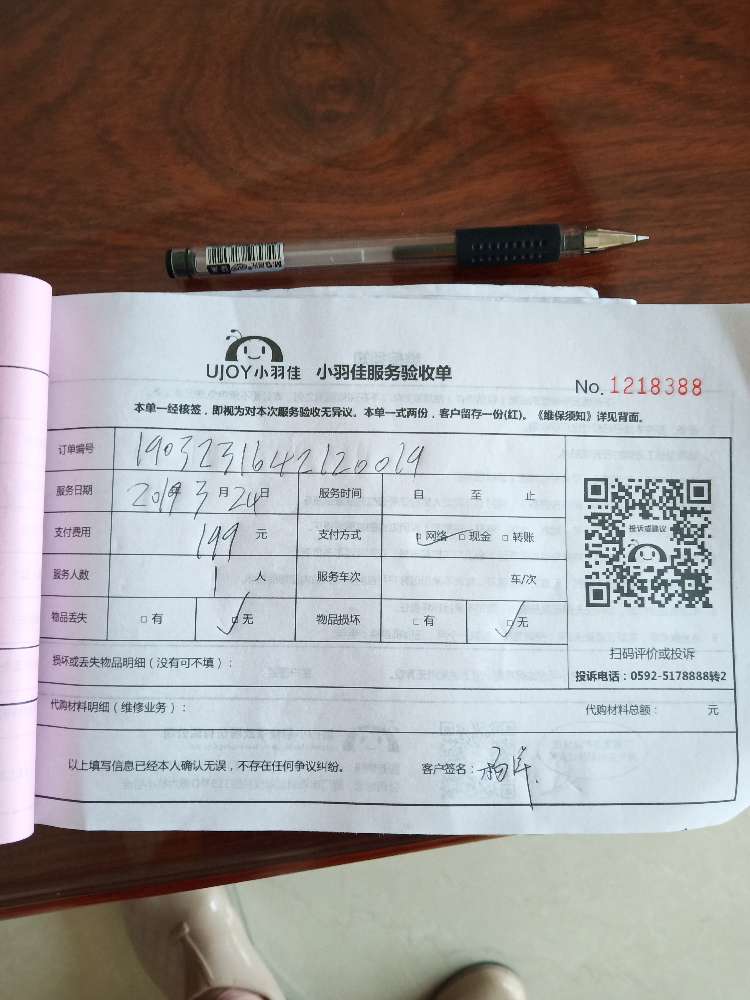 UJOY小羽佳 小羽佳服务验收单
No. 1218388
本单一经核签，即视为对本次服务验收无异议。本单一式两份，客户留存一份(红)。《维保须知》详见背面。
订单编号 1903231642120019
服务日期 2019年3月24日 服务时间 自 至 止
支付费用 199元 支付方式 □网络 □现金 □转账
服务人数 1人 服务车次 车/次
物品丢失 □有 □无 物品损坏 □有 □无
投诉或建议
扫码评价或投诉
投诉电话：0592-5178888转2
损坏或丢失物品明细（没有可不填）：
代购材料明细（维修业务）： 代购材料总额： 元
以上填写信息已经本人确认无误，不存在任何争议纠纷。 客户签名：